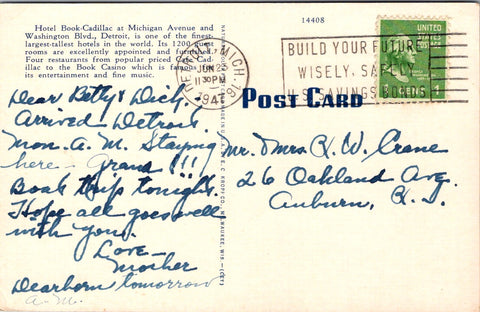 Hotel Book-Cadillac at Michigan Avenue and
Washington Blvd., Detroit, is one of the finest
largest-tallest hotels in the world. Its 1200 guest
rooms are excellently appointed and furnished.
Four restaurants from popular priced Cafe Cad-
illac to the Book Casino which is famous
its entertainment and fine music.
14408
JUN 23
11 30 PM
194
MICH.
BUILD YOUR FUTURE
WISELY, SA
U.S. SAVINGS BONDS
UNITED
STATES
POST CARD
Dear Betty & Dick,
Arrived Detroit
Mon. A.M. Staying
here - Grand !!!
Boat trip tonight.
Hope all goes well
with you.
Love -
Mother
Dearborn tomorrow
a.m.
Mr. Mrs. K. W. Crane
26 Oakland Ave.
Auburn, N.Y.